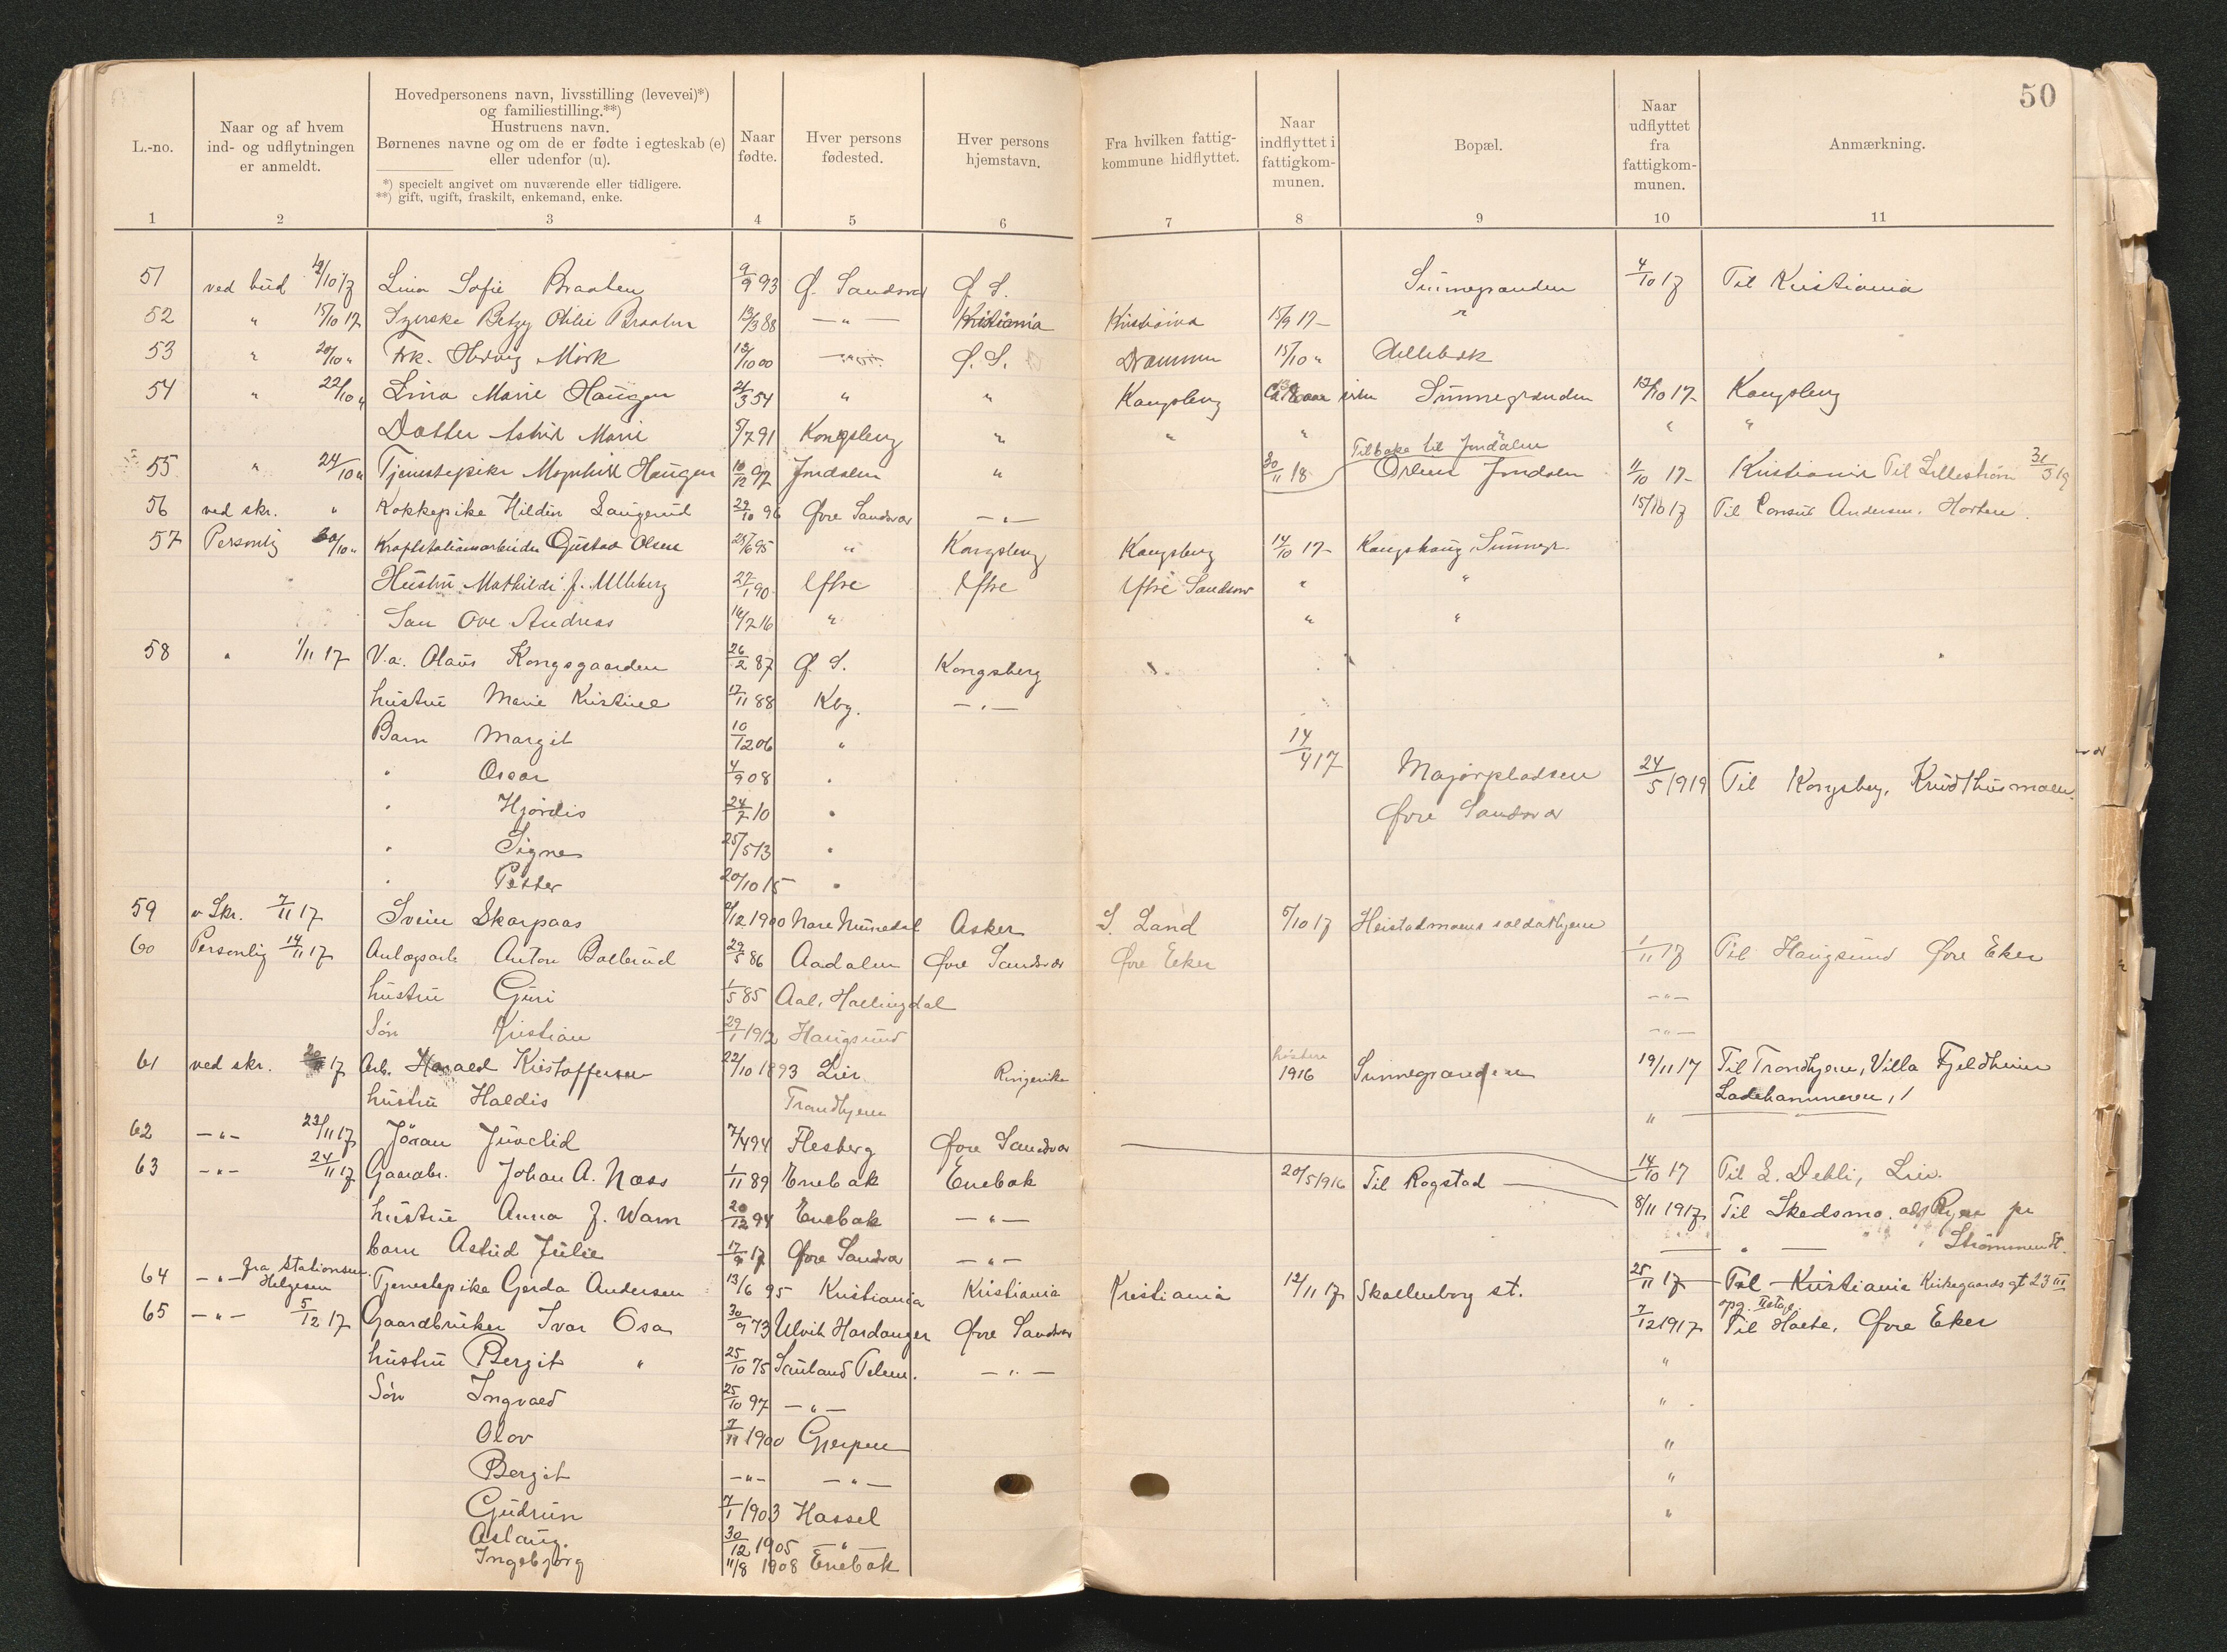 50
L.-no.
Naar og af hvem ind- og udflytningen er anmeldt.
Hovedpersonens navn, livsstilling (levevei)*)
og familiestilling.**)
Hustruens navn.
Børnenes navne og om de er fødte i egteskab (e)
eller udenfor (u).
*) specielt angivet om nuværende eller tidligere.
**) gift, ugift, fraskilt, enkemand, enke.
Naar fødte.
Hver persons fødested.
Hver persons hjemstavn.
Fra hvilken fattigkommune hidflyttet.
Naar indflyttet i fattigkommunen.
Bopæl.
Naar udflyttet fra fattigkommunen.
Anmærkning.
1 2 3 4 5 6 7 8 9 10 11
51 ved bud 12/10 17 Lina Sofie Braaten 9/9 93 Ø. Sandsvær Ø. S. Sünnegranden 4/10 17 Til Kristiania
52 " 15/10 17 Betzy Otilie Braaten 13/3 88 —"— Kristiania Kristiania 15/9 17 "
53 " 20/10 " Frk. Hedvig Mörk 12/10 00 —"— Ø. S. Drammen 15/10 "
54 " 22/10 " Lina Marie Haugen 21/3 54 " " Kongsberg Sünnegranden 12/10 17 Kongsberg
Datter Astrid Marie 5/7 91 Kongsberg " " " " "
Tilbake til Jondalen
55 " 24/10 " Tjenestepike Magnhild Haugen 10/12 97 Jondalen " 30/11 18 Jondalen 1/10 17 Kristiania Til Lillestrøm 31/3 19
56 ved skr. " Kokkepike Hilda Laugerud 29/10 96 Øvre Sandsvær —"— 15/10 17 Til Consul Andersen, Horten.
57 Personlig 30/10 " Kraftstationsarbeider Gustav Olsen 25/6 95 " Kongsberg Kongsberg 14/10 17 Kongshaug Sünnegr.
Hustru Mathilde J. Ulleberg 27/1 90 Efteø Efteø Øfre Sandsvær " "
Sön Ove Andreas 16/7 16 " " "
58 " 1/11 17 V.a. Olaus Kongsgaarden 26/2 87 Ø. S. Kongsberg
hustru Marie Kristine 17/11 88 Kbg. —"—
Barn Margit 10/12 06 " 14/4 17
" Oscar 4/9 08 " Majorpladsen 24/5 1919 Til Kongsberg, Knudthusmoen.
" Hjördis 24/7 10 " Øvre Sandsvær
" Signe 25/5 13 "
" Petter 20/10 15 "
59 v Skr. 7/11 17 Svein Skarpaas 9/12 1900 Nore Numedal Asker S. Land 5/10 17 Heistadmoens soldathjem
60 Personlig 14/11 17 Anlægsarb. Anton Bollerud 29/5 86 Aadalen Øvre Sandsvær Øvre Eker 1/11 17 Til Haugsund Øvre Eker
hustru Guri 1/5 85 Aal, Hallingdal —"—
Sön Kristian 29/1 1912 Haugsund —"—
61 ved skr. 17 Arb. Harald Kristoffersen 22/10 1893 Lier Ringerike høsten 1916 Sünnegranden 19/11 17 Til Trondhjem, Villa Fjeldheim
hustru Haldis Trondhjem " Ladehammeren, 1
62 —"— 23/11 17 Jöran Juvelid 7/4 94 Flesberg Øvre Sandsvær 14/10 17 Til L. Dehli, Lier.
63 —"— 24/11 17 Gaardbr. Johan A. Næss 1/11 89 Enebak Enebak 20/5 1916 Til Rogstad 8/11 1917 Til Skedsmo. pr
hustru Anna J. Warn 20/12 94 Enebak —"— Strømmen St.
barn Astrid Julie 17/9 17 Øvre Sandsvær —"—
64 —"— fra Stationsm. Helgesen Tjenestepike Gerda Andersen 13/6 95 Kristiania Kristiania Kristiania 12/11 17 Skollenborg st. 25/11 17 Til Kristiania Kirkegaards gt 23 III
opg. II etage
65 —"— 5/12 17 Gaardbruker Ivar Osa 30/9 73 Ulvik Hardanger Øvre Sandsvær 7/12 1917 Til Øvre Eker
hustru Bergit " 25/10 75 Sauland Telem. —"— "
Sön Ingvald 25/10 97 —"— "
Olav 7/11 1900 Gjerpen "
Bergit —"— —"— "
Gudrun 7/1 1903 Hassel "
Aslaug 30/12 1905 —"—
Ingebjörg 11/8 1908 Enebak